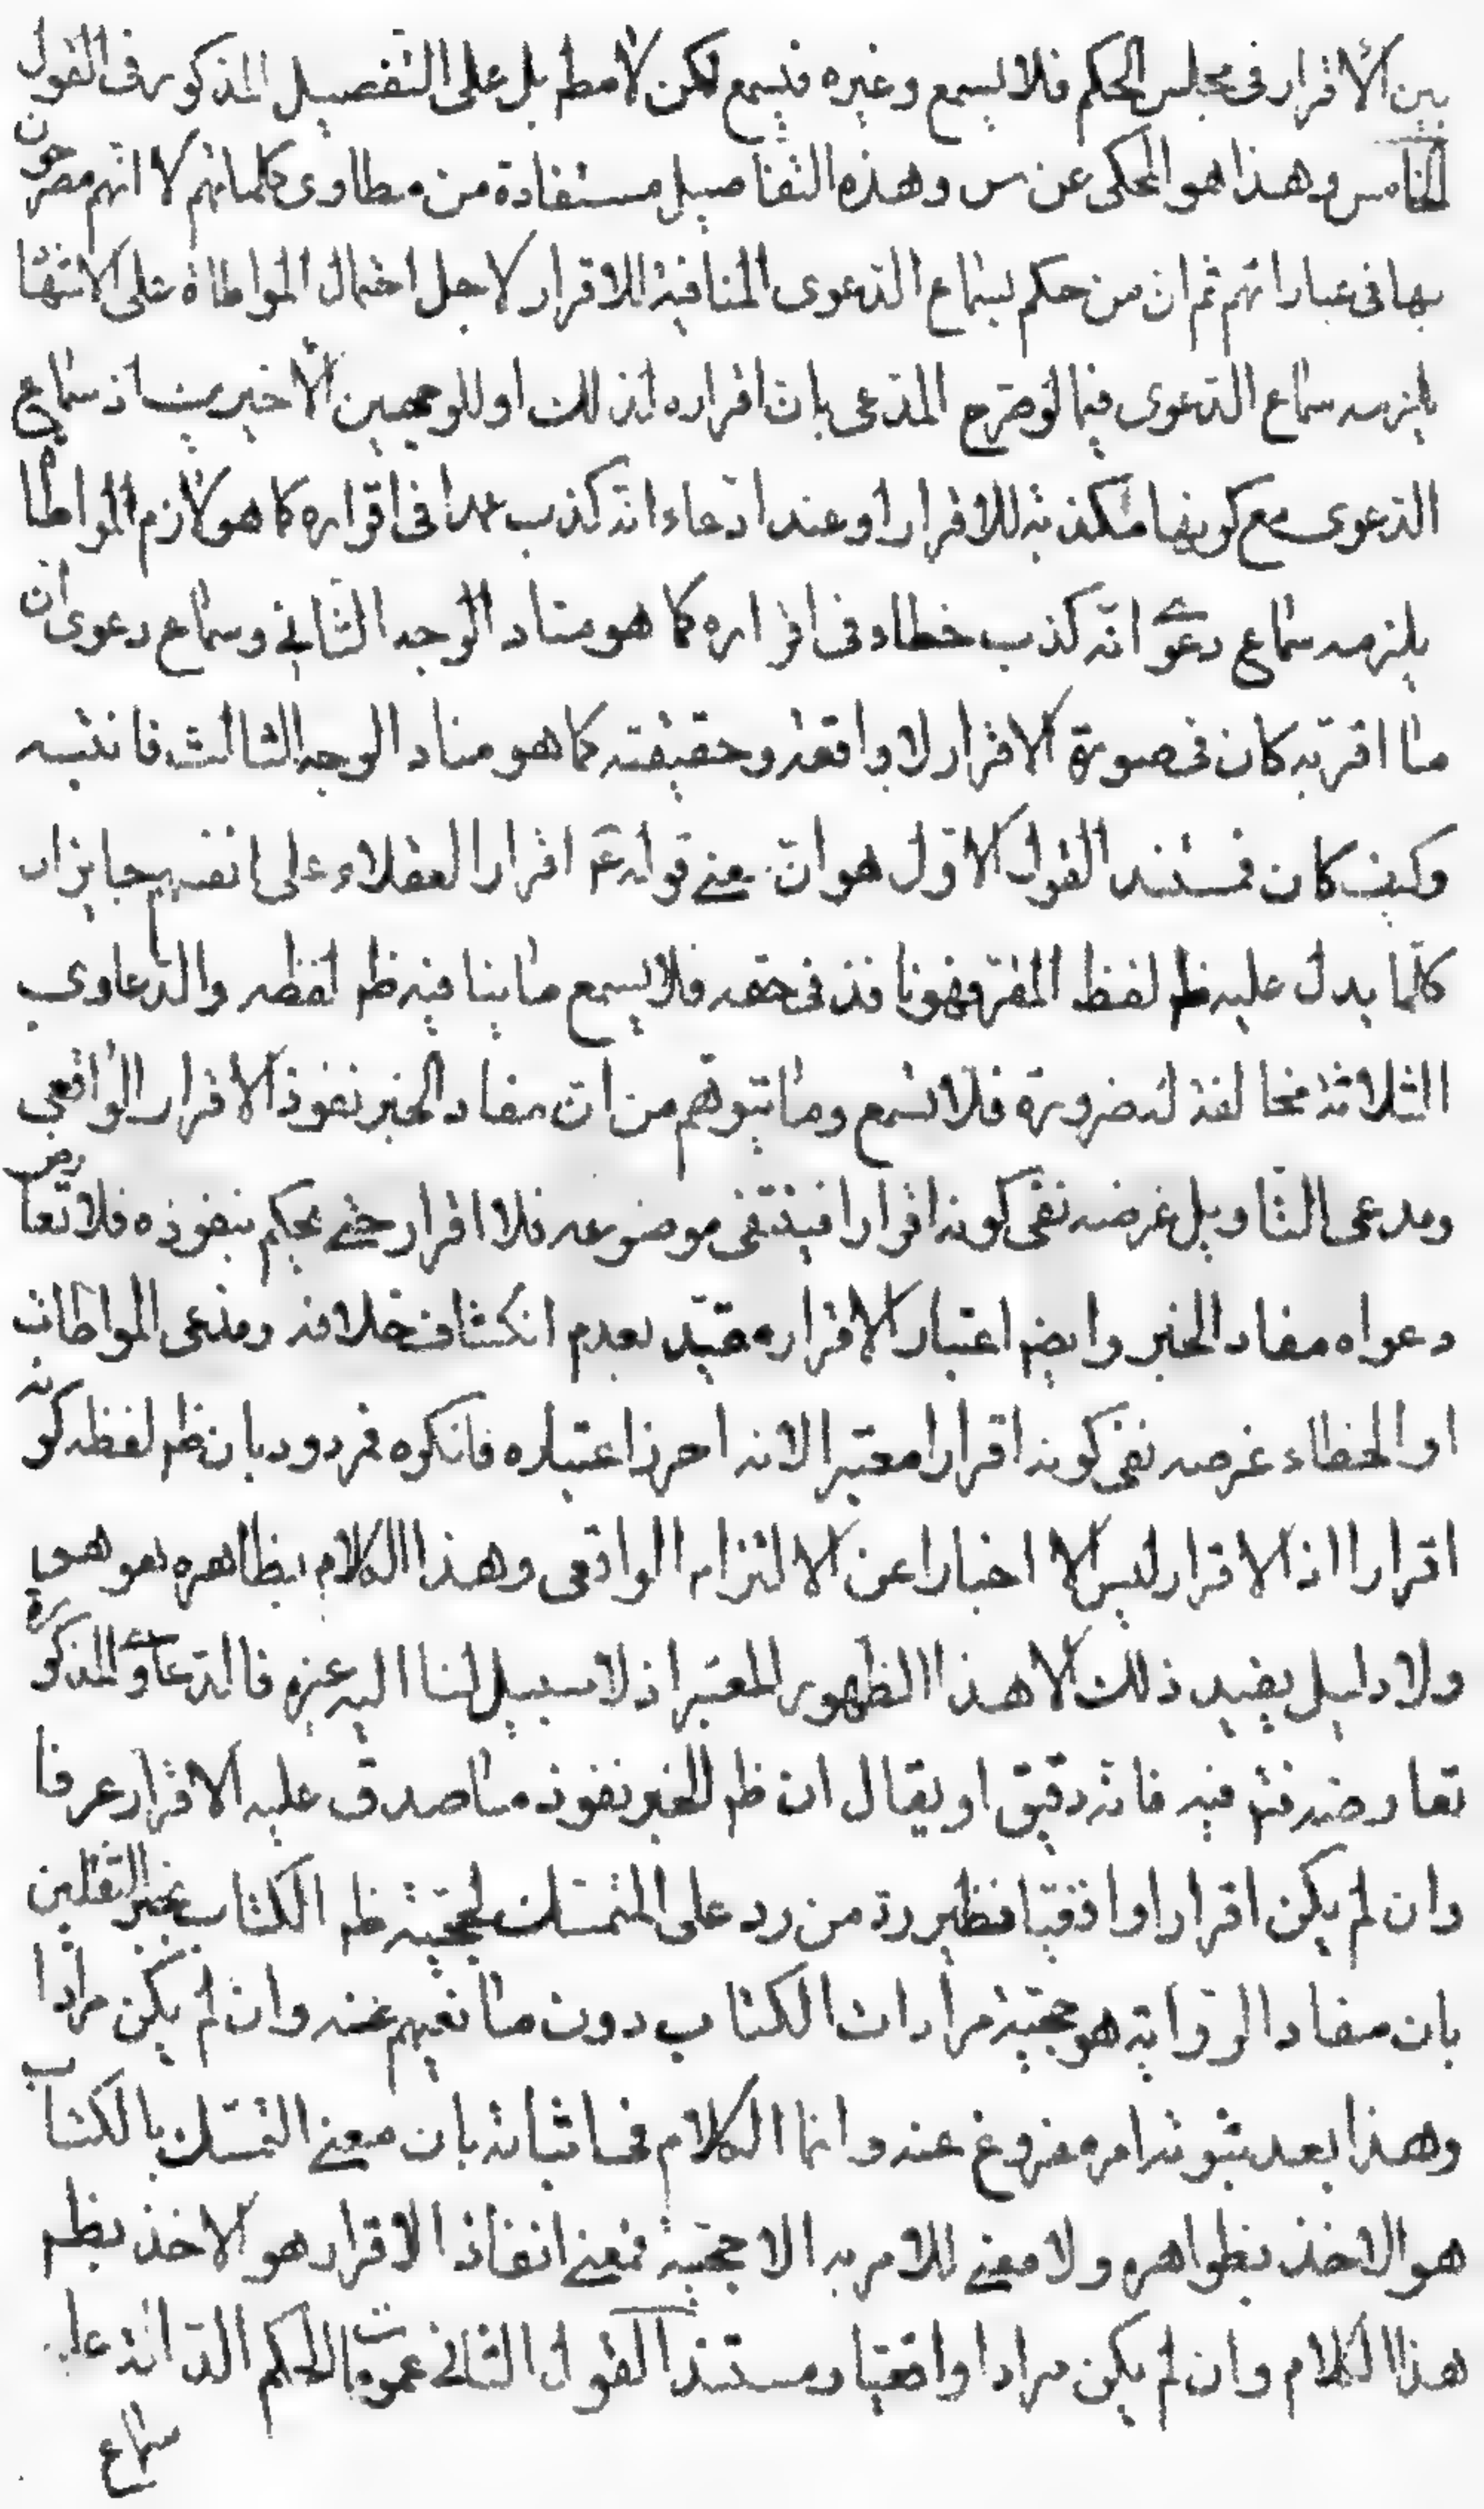 بين الأقرار فى مجلس الحكم فلا يسمع وغيره فيسمع لكن لا مطم بل على التفصيل المذكور فى القول
الخامس وهذا هو المحكى عن س وهذه التفاصيل مستفادة من مطاوى كلماتهم لا انهم مصرحون
بها فى عباراتهم ثم ان من حكم بسماع الدعوى المنافية للاقرار لاجل احتمال المواطاة على الاشهاد
يلزمه سماع الدعوى فيما لو صرح المدعى بان اقراره لذلك او للوجهين الأخيرين اذ سماع
الدعوى مع كونها مكذبة للاقرار او عند ادعاء انه كذب عمدا فى اقراره كما هو لازم المواطاة
يلزمه سماع دعوى انه كذب خطاء فى اقراره كما هو مفاد الوجه الثانى وسماع دعوى ان
ما اقر به كان فى صورة الاقرار لا واقعه وحقيقته كما هو مفاد الوجه الثالث فانتبه
وكيف كان فمستند القول الاول هو ان معنى قوله ع اقرار العقلاء على انفسهم جايز ان
كلما يدل عليه ظم لفظ المقر فهو نافذ فى حقه فلا يسمع ما ينافيه ظم لفظه والدعاوى
الثلاثة مخالفة لضرورة فلا تسمع وما يتوهم من ان مفاد الخبر نفوذ الاقرار الواقعى
ومدعى التاويل غرضه نفى كونه اقرارا فينتفى موضوعه فلا اقرار حتى يحكم بنفوذه فلا تعارض
دعواه مفاد الخبر وايضم اعتبار الاقرار مقيد بعدم انكشاف خلافه ومدعى المواطات
او الخطاء غرضه نفى كونه اقرارا معتبرا لانه احرز اعتباره فانكره فمردود بان ظم لفظه كونه
اقرارا اذ الاقرار ليس الا اخبارا عن الالتزام الواقعى وهذا الكلام بظاهره هو هو
ولا دليل يفيد ذلك الا هذا الظهور المعتبر اذ لا سبيل لنا اليه غيره فالدعاوى المذكورة
تعارضه فتم فيه فانه دقيق او يقال ان ظم الخبر نفوذ ما صدق عليه الاقرار عرفا
وان لم يكن اقرارا واقعيا فظير رد من رد على المتمسك لحجية ظم الكتاب بخبر الثقلين
بان مفاد الرواية هو حجية مرادات الكتاب دون ما نفهم عنه وان لم يكن مرادا
وهذا بعد ثبوته امر مفروغ عنه وانما الكلام فى اثباته بان معنى التمسك بالكتاب
هو الاخذ بظواهره ولا معنى للامر به الا حجيته فمعنى انفاذ الاقرار هو الاخذ بظم
هذا الكلام وان لم يكن مرادا واقعيا ومستند القول الثانى عمومات الحكم الدالة على
سماع